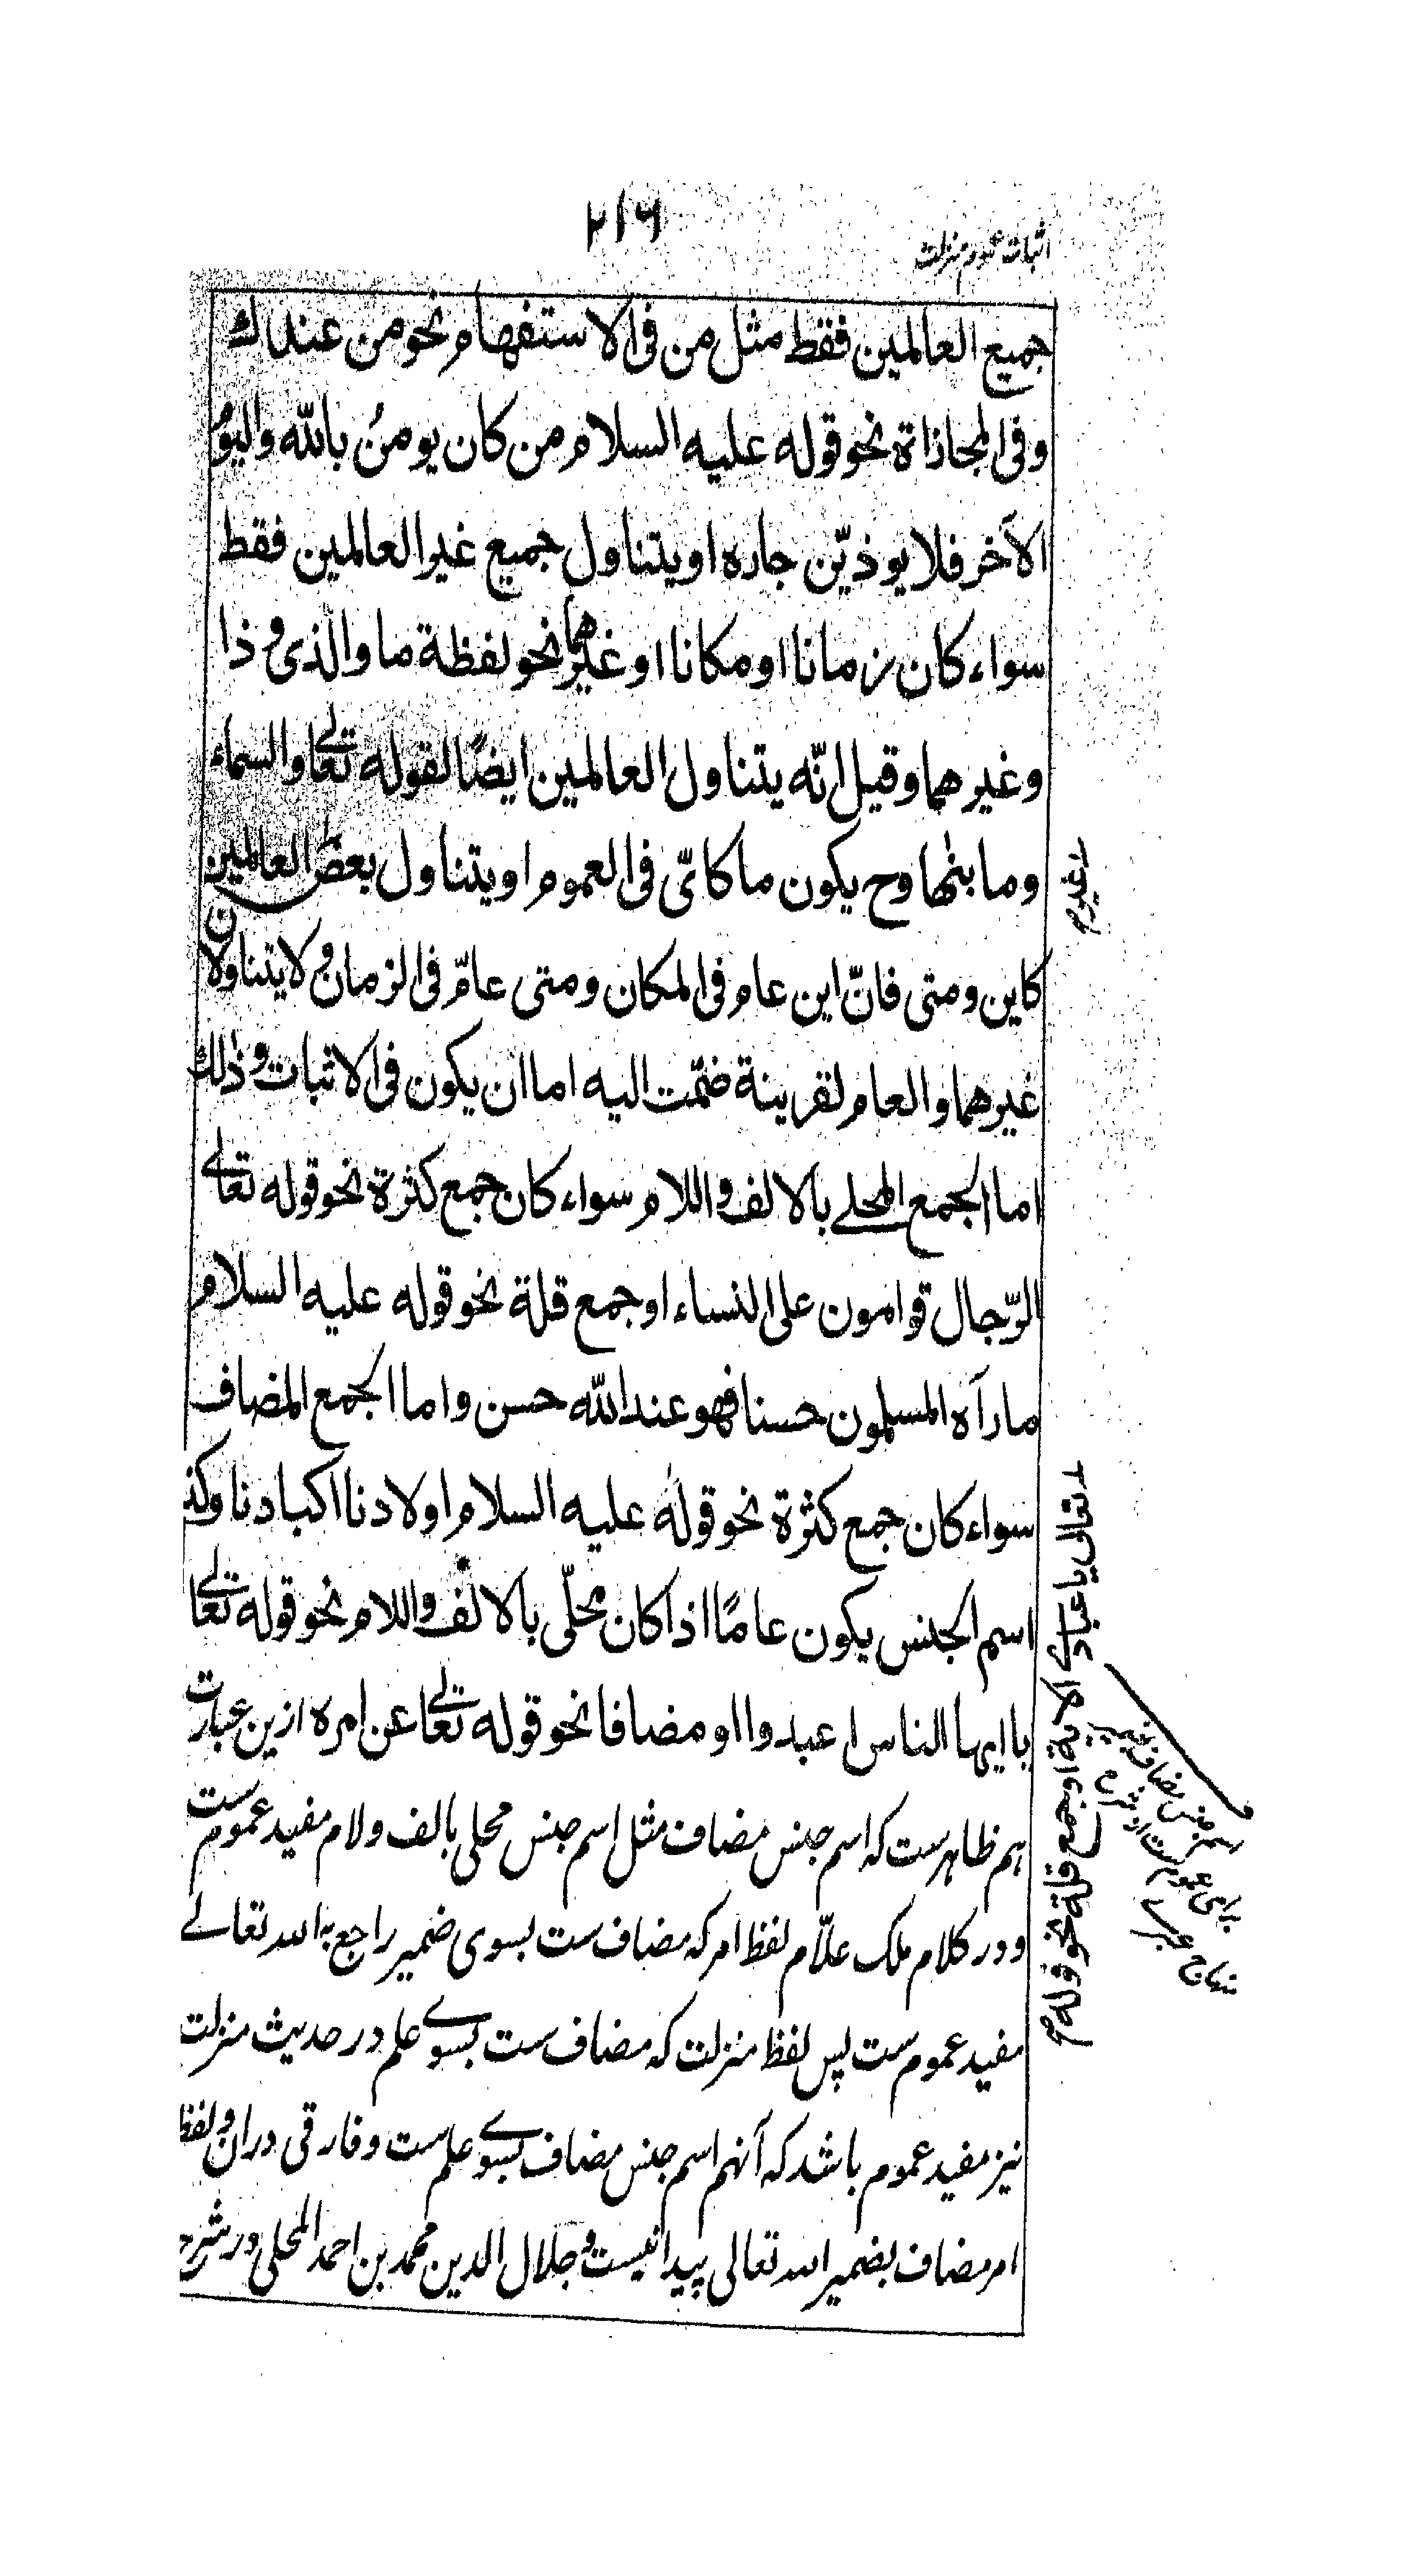 ۲۱۶
اثبات عموم منزلت
جميع العالمين فقط مثل من فى الاستفهام نحو من عندك
وفى المجازاة نحو قوله عليه السلام من كان يومنُ بالله واليو
الآخر فلا يوذيّن جاره او يتناول جميع غير العالمين فقط
سواء كان زمانا او مكانا او غيرهما نحو لفظة ما والذى و ذا
وغيرهما وقيل انّه يتناول العالمين ايضًا لقوله تعالے والسماء
وما بنٰها وح يكون ما كاىّ فى العموم او يتناول بعض العالمين
كاين ومتى فانّ اين عام فى المكان ومتى عامّ فى الزمان و لا يتناولان
غيرهما والعام لقرينة ضمّت اليه اما ان يكون فى الاثبات و ذلك
اما الجمع المحلے بالالف واللام سواء كان جمع كثرة نحو قوله تعالے
الرّجال قوامون على النساء او جمع قلة نحو قوله عليه السلام
ما رآه المسلمون حسنا فهو عند الله حسن واما الجمع المضاف
سواء كان جمع كثرة نحو قوله عليه السلام اولادنا اكبادنا وكذ
اسم الجنس يكون عامًا اذا كان محلّى بالالف واللام نحو قوله تعالے
باايها الناس اعبدوا او مضافا نحو قوله تعالے عن امره ازين عبارت
هم ظاهرست كه اسم جنس مضاف مثل اسم جنس محلى بالف ولام مفيد عموم ست
و در كلام ملك علّام لفظ امر كه مضاف ست بسوى ضمير راجع به الله تعالے
مفيد عموم ست پس لفظ منزلت كه مضاف ست بسوے علم در حديث منزلت
نيز مفيد عموم باشد كه آنهم اسم جنس مضاف بسوے علم ست و فارقى دران و لفظ
امر مضاف بضمير الله تعالى پيدا نيست و جلال الدين محمد بن احمد المحلى در شرح
تعالى يا عبادے الاية او جمع قلة نحو قوله
اسم جنس مضاف